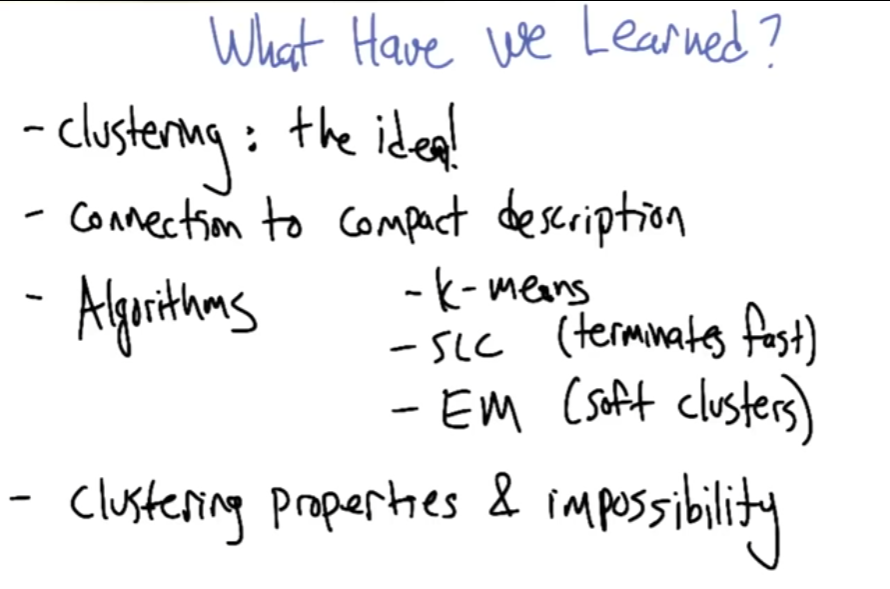 What Have We Learned?
- clustering: the idea!
- connection to compact description
- Algorithms - k-means
- SLC (terminates fast)
- EM (soft clusters)
- clustering properties & impossibility